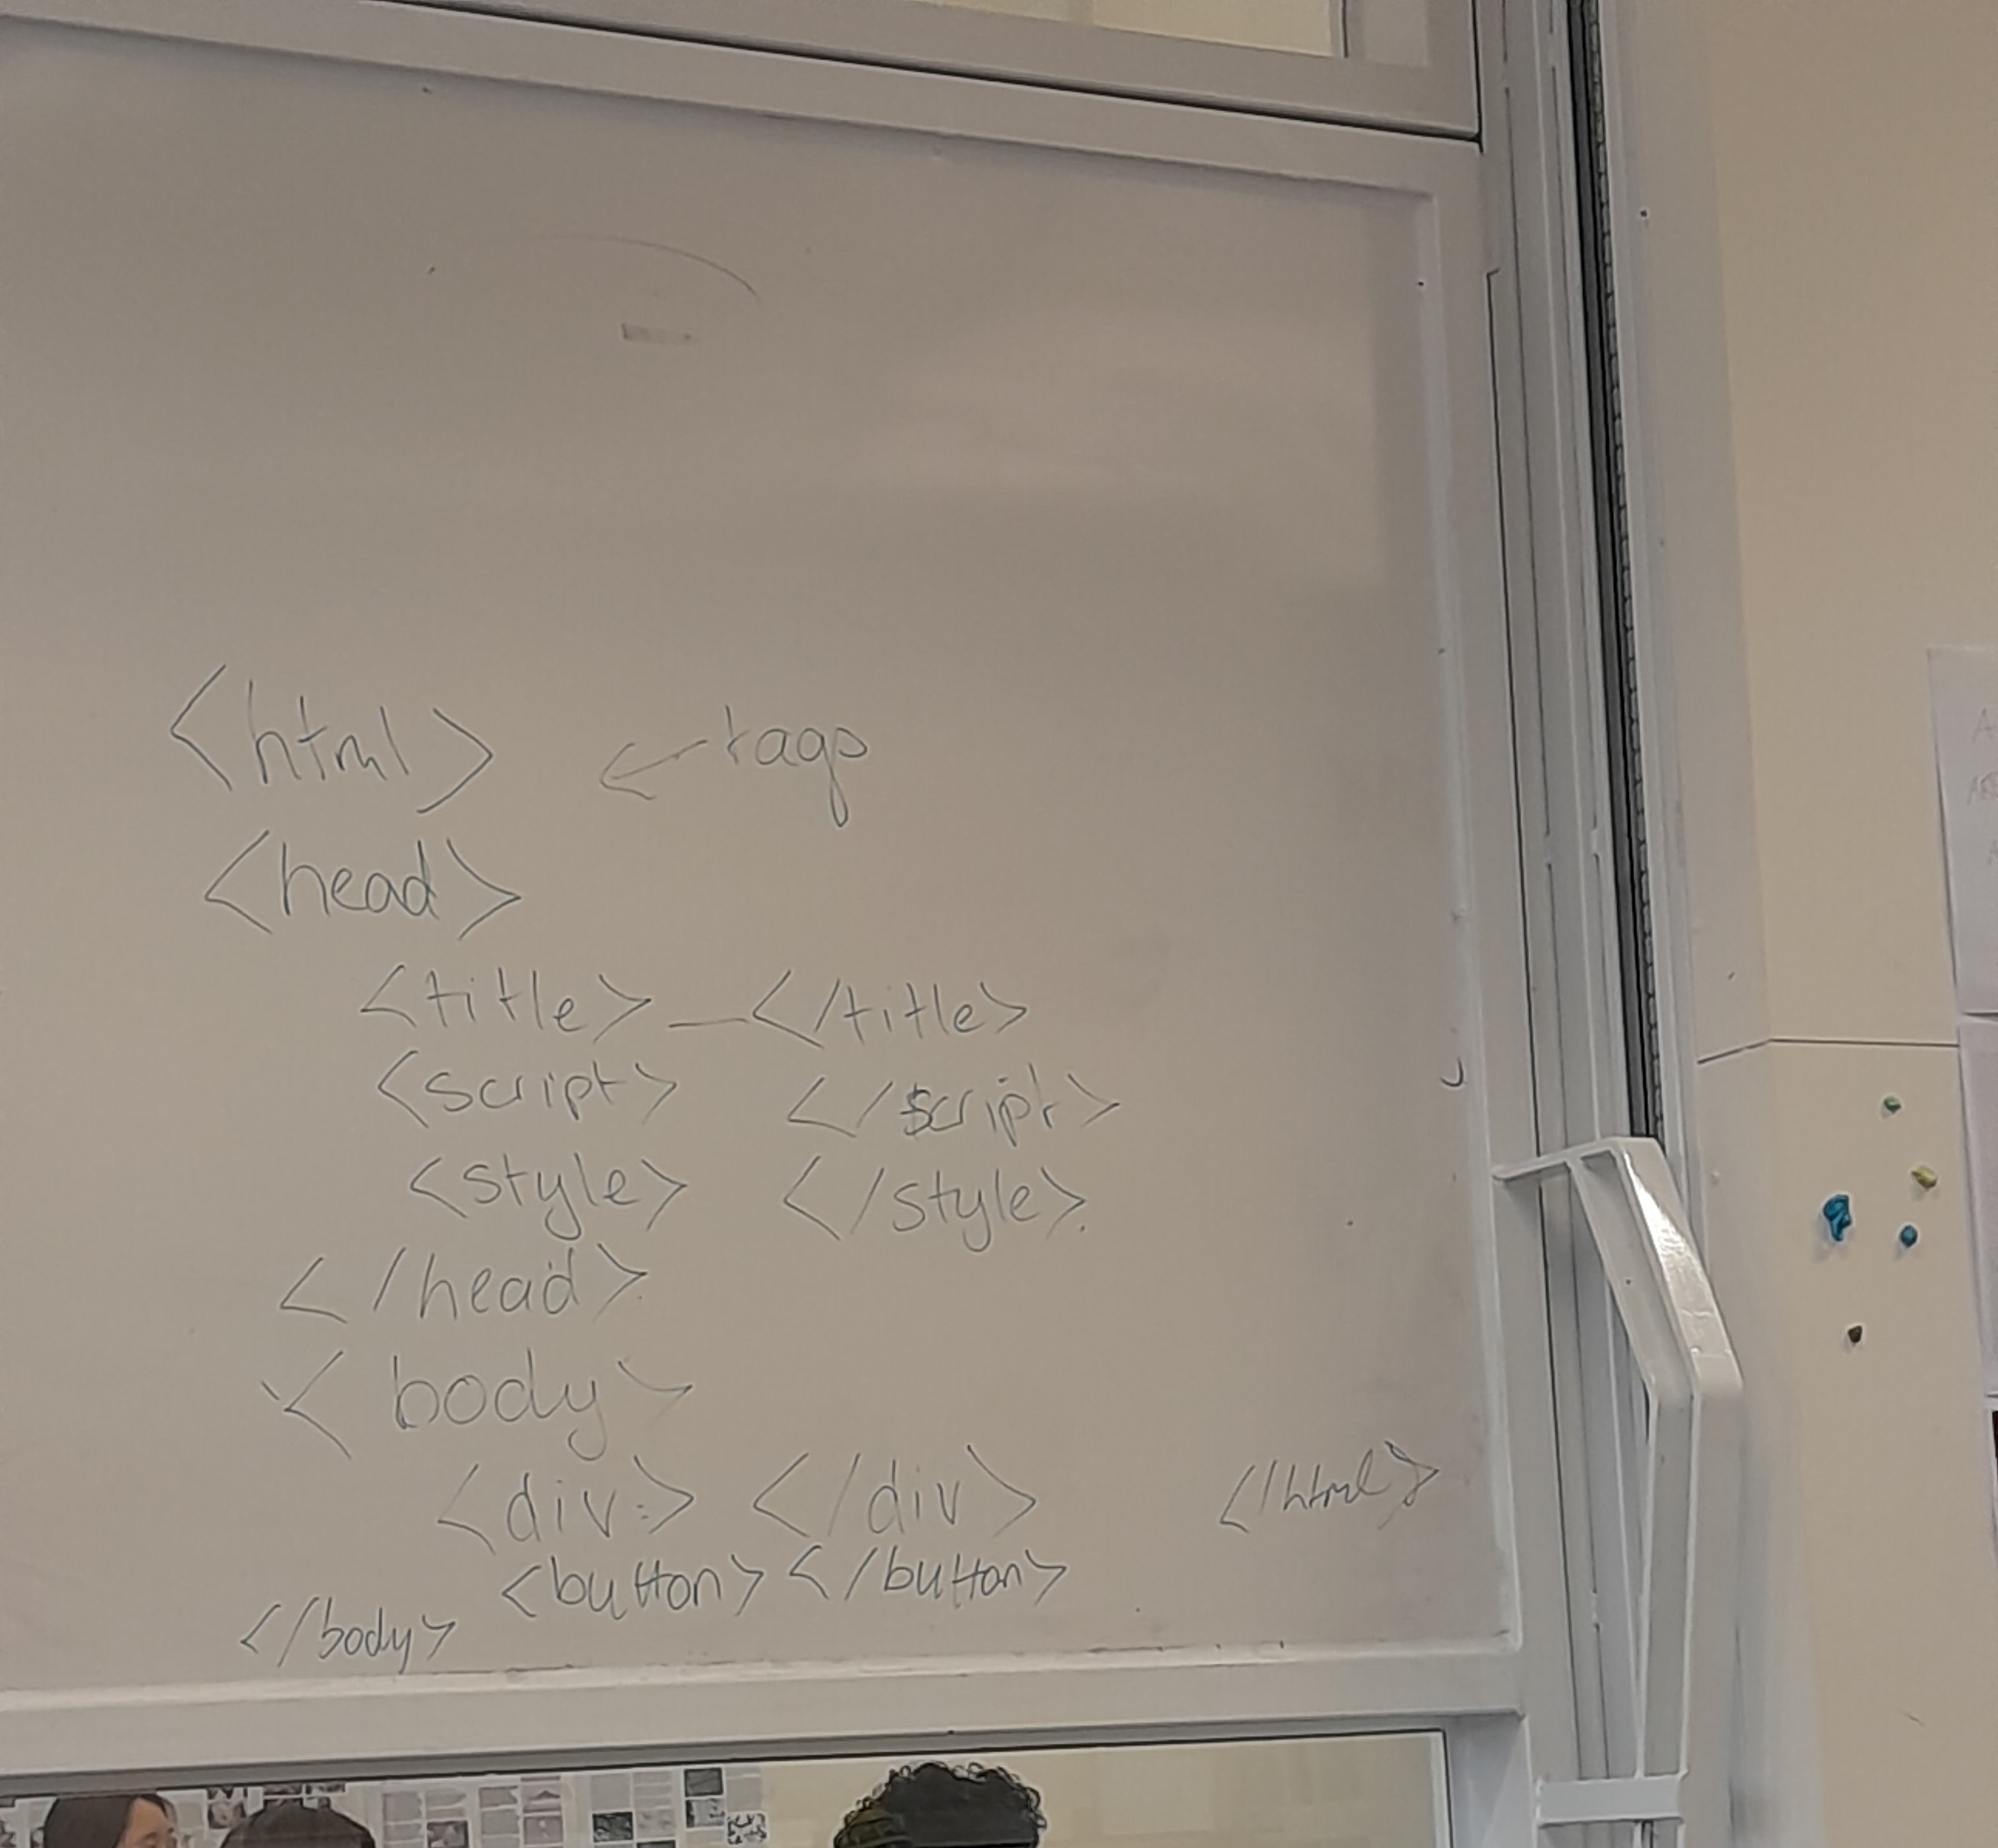 <html> ← tags
<head>
<title> _ </title>
<script> </script>
<style> </style>
</head>
<body>
<div> </div>
<button> </button>
</body>
</html>